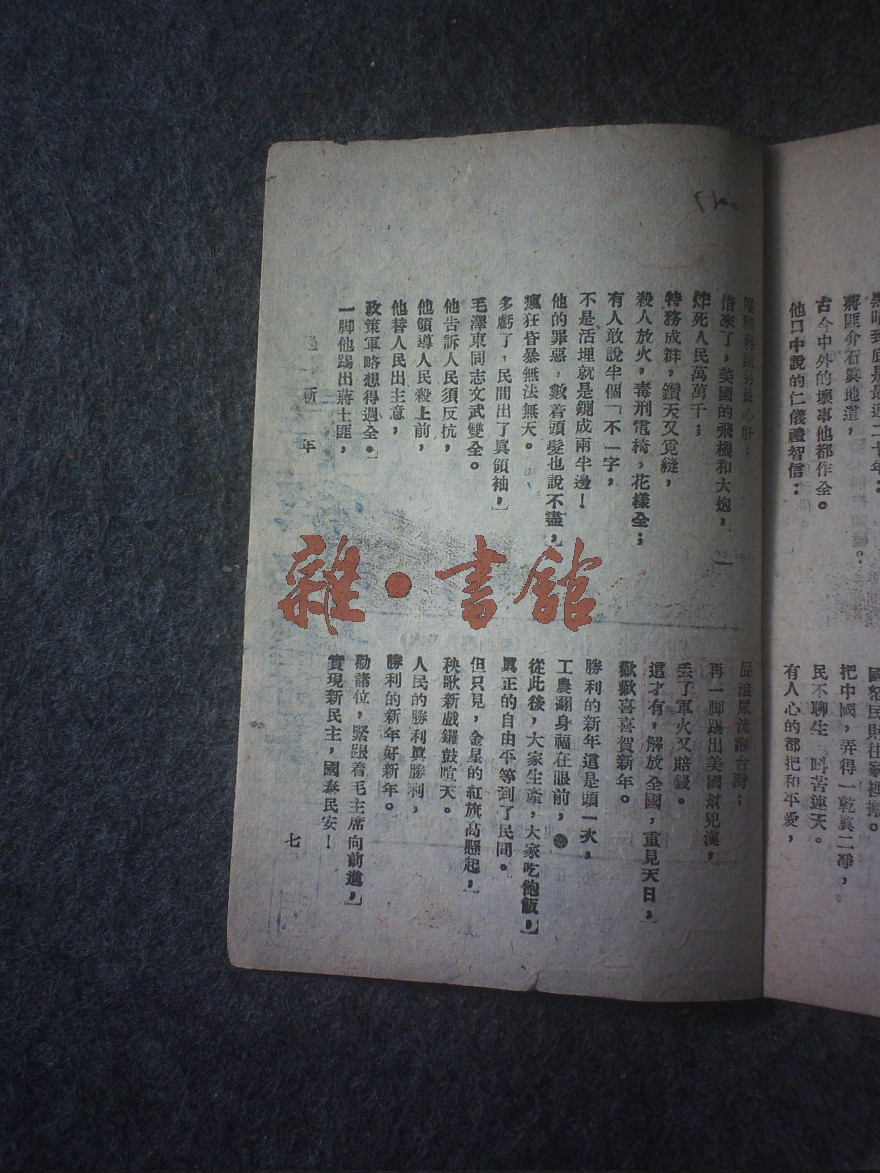 黑暗到底是最近二十年：
蔣匪介石與地道，
古今中外的壞事他都作全。
他口中說的仁儀禮智信：
國帑民財往家裡搬。
把中國，弄得一乾眞二凈，
民不聊生 叫苦連天。
有人心的都把和平愛，
借來了，美國的飛機和大炮，
炸死人民萬萬千；
特務成群，鑽天又覓縫，
殺人放火，毒刑電椅，花樣全；
有人敢說半個「不一字，
不是活埋就是鍘成兩半邊！
他的罪惡，數着頭髮也說不盡，
瘋狂昏暴無法無天。
多虧了，民間出了眞領袖，
毛澤東同志文武雙全。
他告訴人民須反抗，
他領導人民殺上前，
他替人民出主意，
政策軍略想得週全。
一脚他踢出蔣士匪，
屁滾尿流蹿台灣；
再一脚踢出美國幫兇漢，
丢了軍火又賠錢。
這才有，解放全國，重見天日，
歡歡喜喜賀新年。
勝利的新年這是頭一次，
工農翻身福在眼前，
從此後，大家生產，大家吃飽飯，
眞正的自由平等到了民間。
但只見，金星的紅旗高懸起，
秧歌新戲鑼鼓喧天。
人民的勝利眞勝利，
勝利的新年好新年。
勸諸位，緊跟着毛主席向前進，
實現新民主，國泰民安！
過新年
七
雜·書館